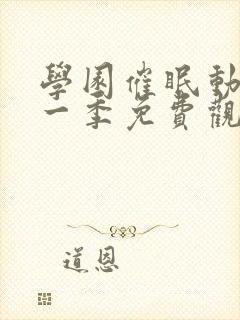 學園催眠動
一季免費觀
道恩